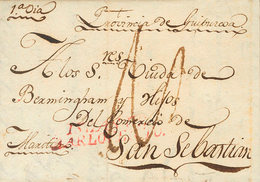 1ª Dia Provincia de Guipuzcoa
A los S.res Viuda de
Bermingham y Hijos
Del Comercio de
San Sebastian